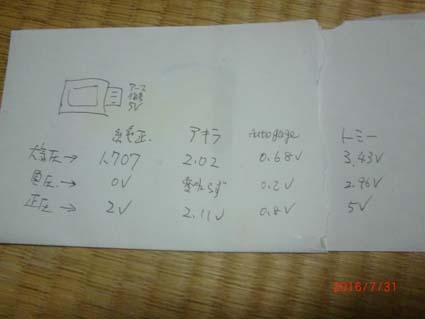 アース
信号
5V
純正 アキラ Autogage トミー
大気圧→ 1.707 2.02 0.68V 3.43V
負圧→ 0V 変わらず 0.2V 2.96V
正圧→ 2V 2.11V 0.8V 5V
2016/7/31